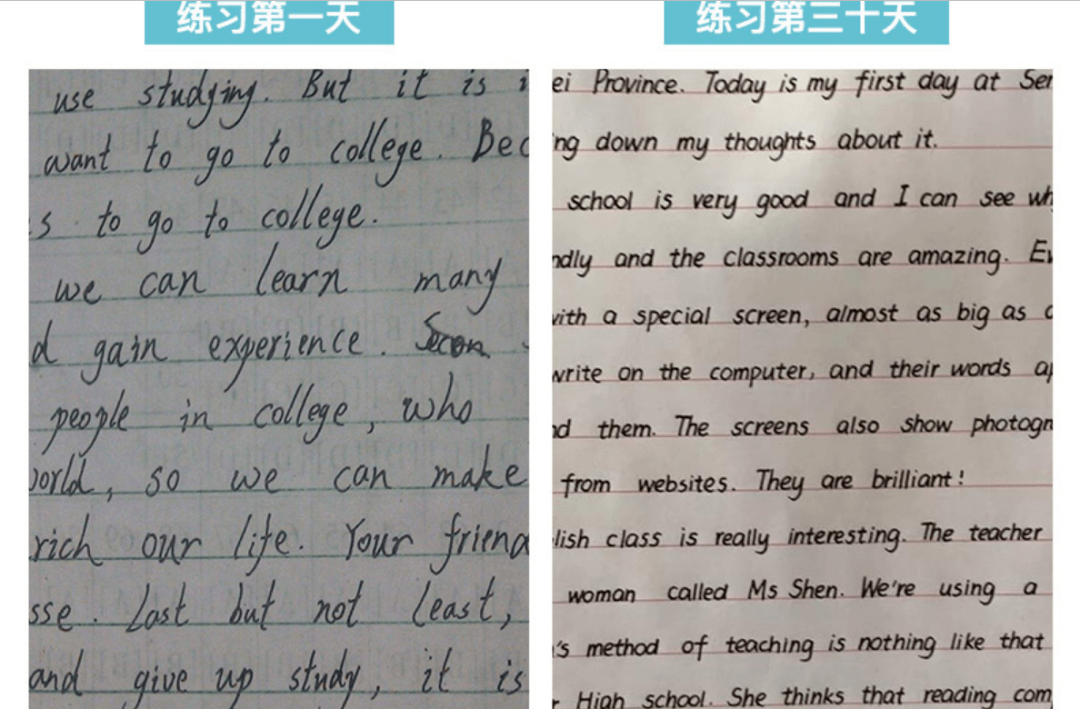 练习第一天
use studying. But it is
want to go to college. Bec
s to go to college.
we can learn many
d gain experience. Secon
people in college, who
world, so we can make
rich our life. Your friend
sse. Last but not least,
and give up study, it is
练习第三十天
ei Province. Today is my first day at Sen
ng down my thoughts about it.
school is very good and I can see wh
ndly and the classrooms are amazing. Ev
with a special screen, almost as big as
write on the computer, and their words ap
nd them. The screens also show photogr
from websites. They are brilliant!
lish class is really interesting. The teacher
woman called Ms Shen. We're using a
's method of teaching is nothing like that
High school. She thinks that reading com